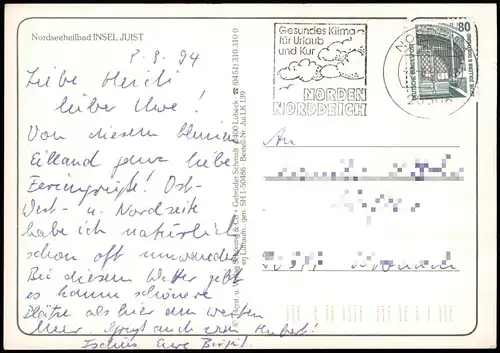 Nordseeheilbad INSEL JUIST
8.8.94
Liebe Heidi
lieber Uwe!
Von diesem kleinen
Eiland ganz liebe
Feriengrüße! Ost-
West- u. Nordseite
habe ich natürlich
schon oft umwandert
Bei diesem Wetter gibt
es kaum schönere
Plätze als hier am weiten
Meer.
Tschüs Eure Birgit.
Gesundes Klima
für Urlaub
und Kur
NORDEN
NORDDEICH
80
DEUTSCHE BUNDESPOST
An
Gebrüder Schmidt 2400 Lübeck ☎ (0451) 310 310
Bestell-Nr. Jui LK 139